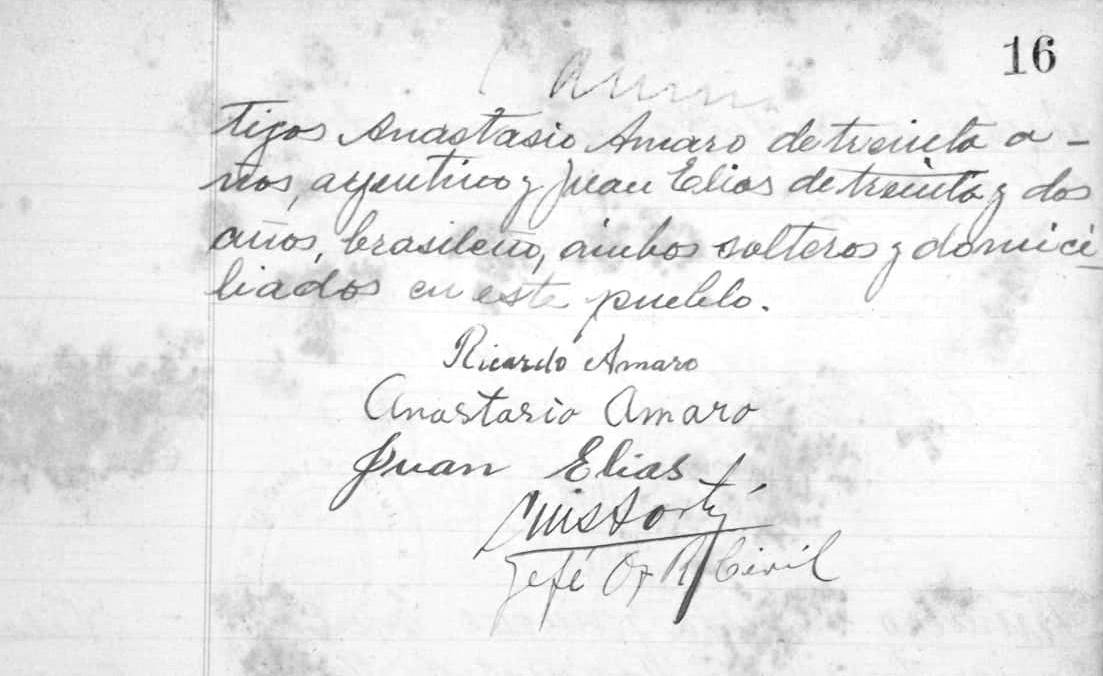 16
tigos Anastasio Amaro de treinta a-
ños, argentino y Juan Elias de treinta y dos
años, brasileño, ambos solteros y domici-
liados en este pueblo.
Ricardo Amaro
Anastasio Amaro
Juan Elias
Luis
Jefe Of R Civil